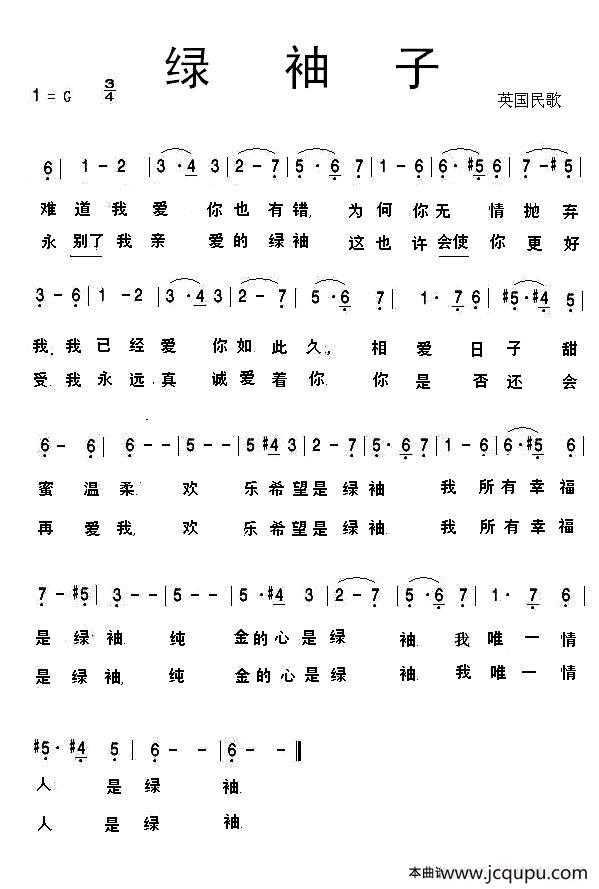 绿 袖 子
1 = G 3/4
英国民歌
6 | 1 - 2 | 3 · 4 3 | 2 - 7 | 5 · 6 7 | 1 - 6 | 6 · #5 6 | 7 - #5 |
难 道 我 爱 你 也 有 错, 为 何 你 无 情 抛 弃
永 别了 我 亲 爱 的 绿 袖 这 也 许 会使 你 更 好
3 - 6 | 1 - 2 | 3 · 4 3 | 2 - 7 | 5 · 6 7 | 1 · 7 6 | #5 · #4 5 |
我, 我 已 经 爱 你 如 此 久, 相 爱 日 子 甜
受. 我 永 远 真 诚 爱 着 你. 你 是 否 还 会
6 - 6 | 6 - - | 5 - - | 5 #4 3 | 2 - 7 | 5 · 6 7 | 1 - 6 | 6 · #5 6 |
蜜 温 柔. 欢 乐 希 望 是 绿 袖 我 所 有 幸 福
再 爱 我, 欢 乐 希 望 是 绿 袖. 我 所 有 幸 福
7 - #5 | 3 - - | 5 - - | 5 · #4 3 | 2 - 7 | 5 · 6 7 | 1 · 7 6 |
是 绿 袖. 纯 金 的 心 是 绿 袖. 我 唯 一 情
是 绿 袖, 纯 金 的 心 是 绿 袖. 我 唯 一 情
#5 · #4 5 | 6 - - | 6 - - ‖
人 是 绿 袖.
人 是 绿 袖.
本曲 www.jcqupu.com